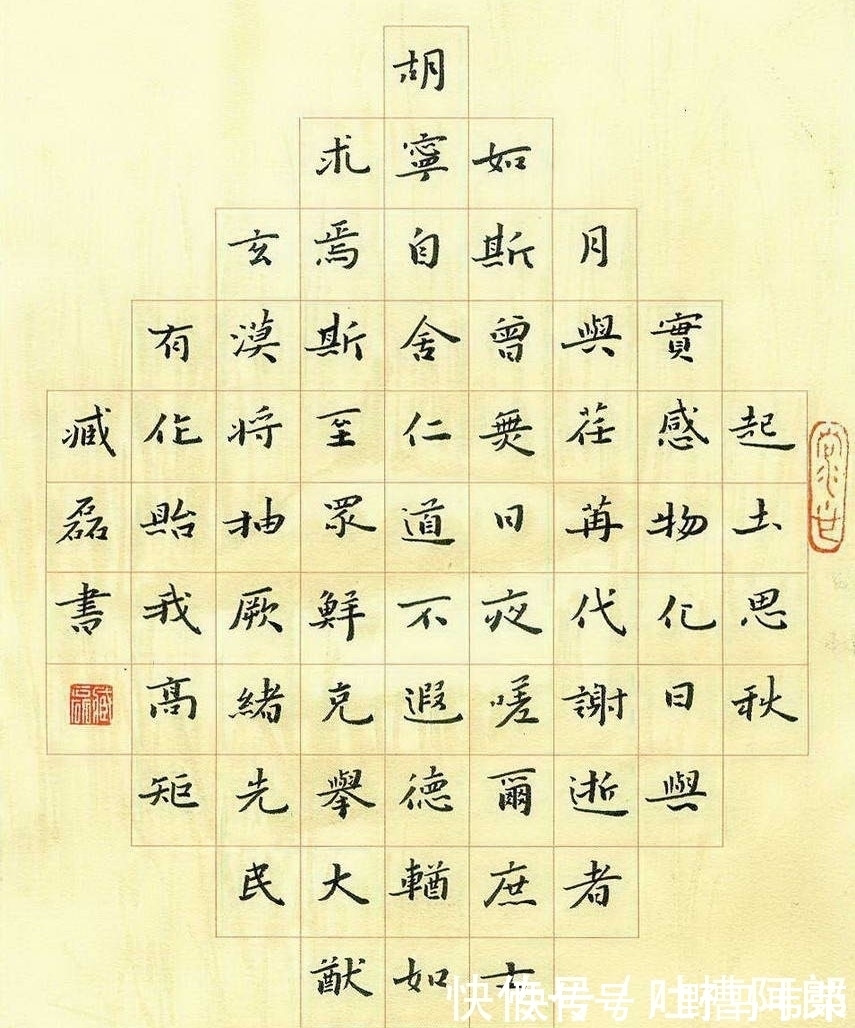 起土思秋
實感物化日與
月與荏苒代謝逝者
如斯曾無日夜嗟爾庶士
胡寧自舍仁道不遐德輶如
求焉斯至眾鮮克舉大猷
玄漠將抽厥緒先民
有作貽我高矩
臧磊書
臧磊
快传号/吐槽阿郎